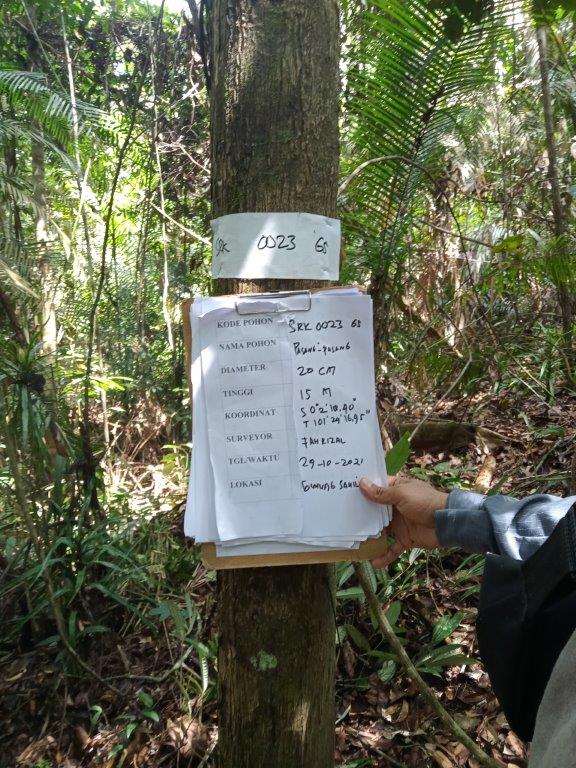 SRK 0023 GS
KODE POHON SRK 0023 GS
NAMA POHON Pasang-pasang
DIAMETER 20 CM
TINGGI 15 M
KOORDINAT S 0°2'18,90"
T 101°29'16,95"
SURVEYOR FAHRIZAL
TGL/WAKTU 29-10-2021
LOKASI GUNUNG SAHIL